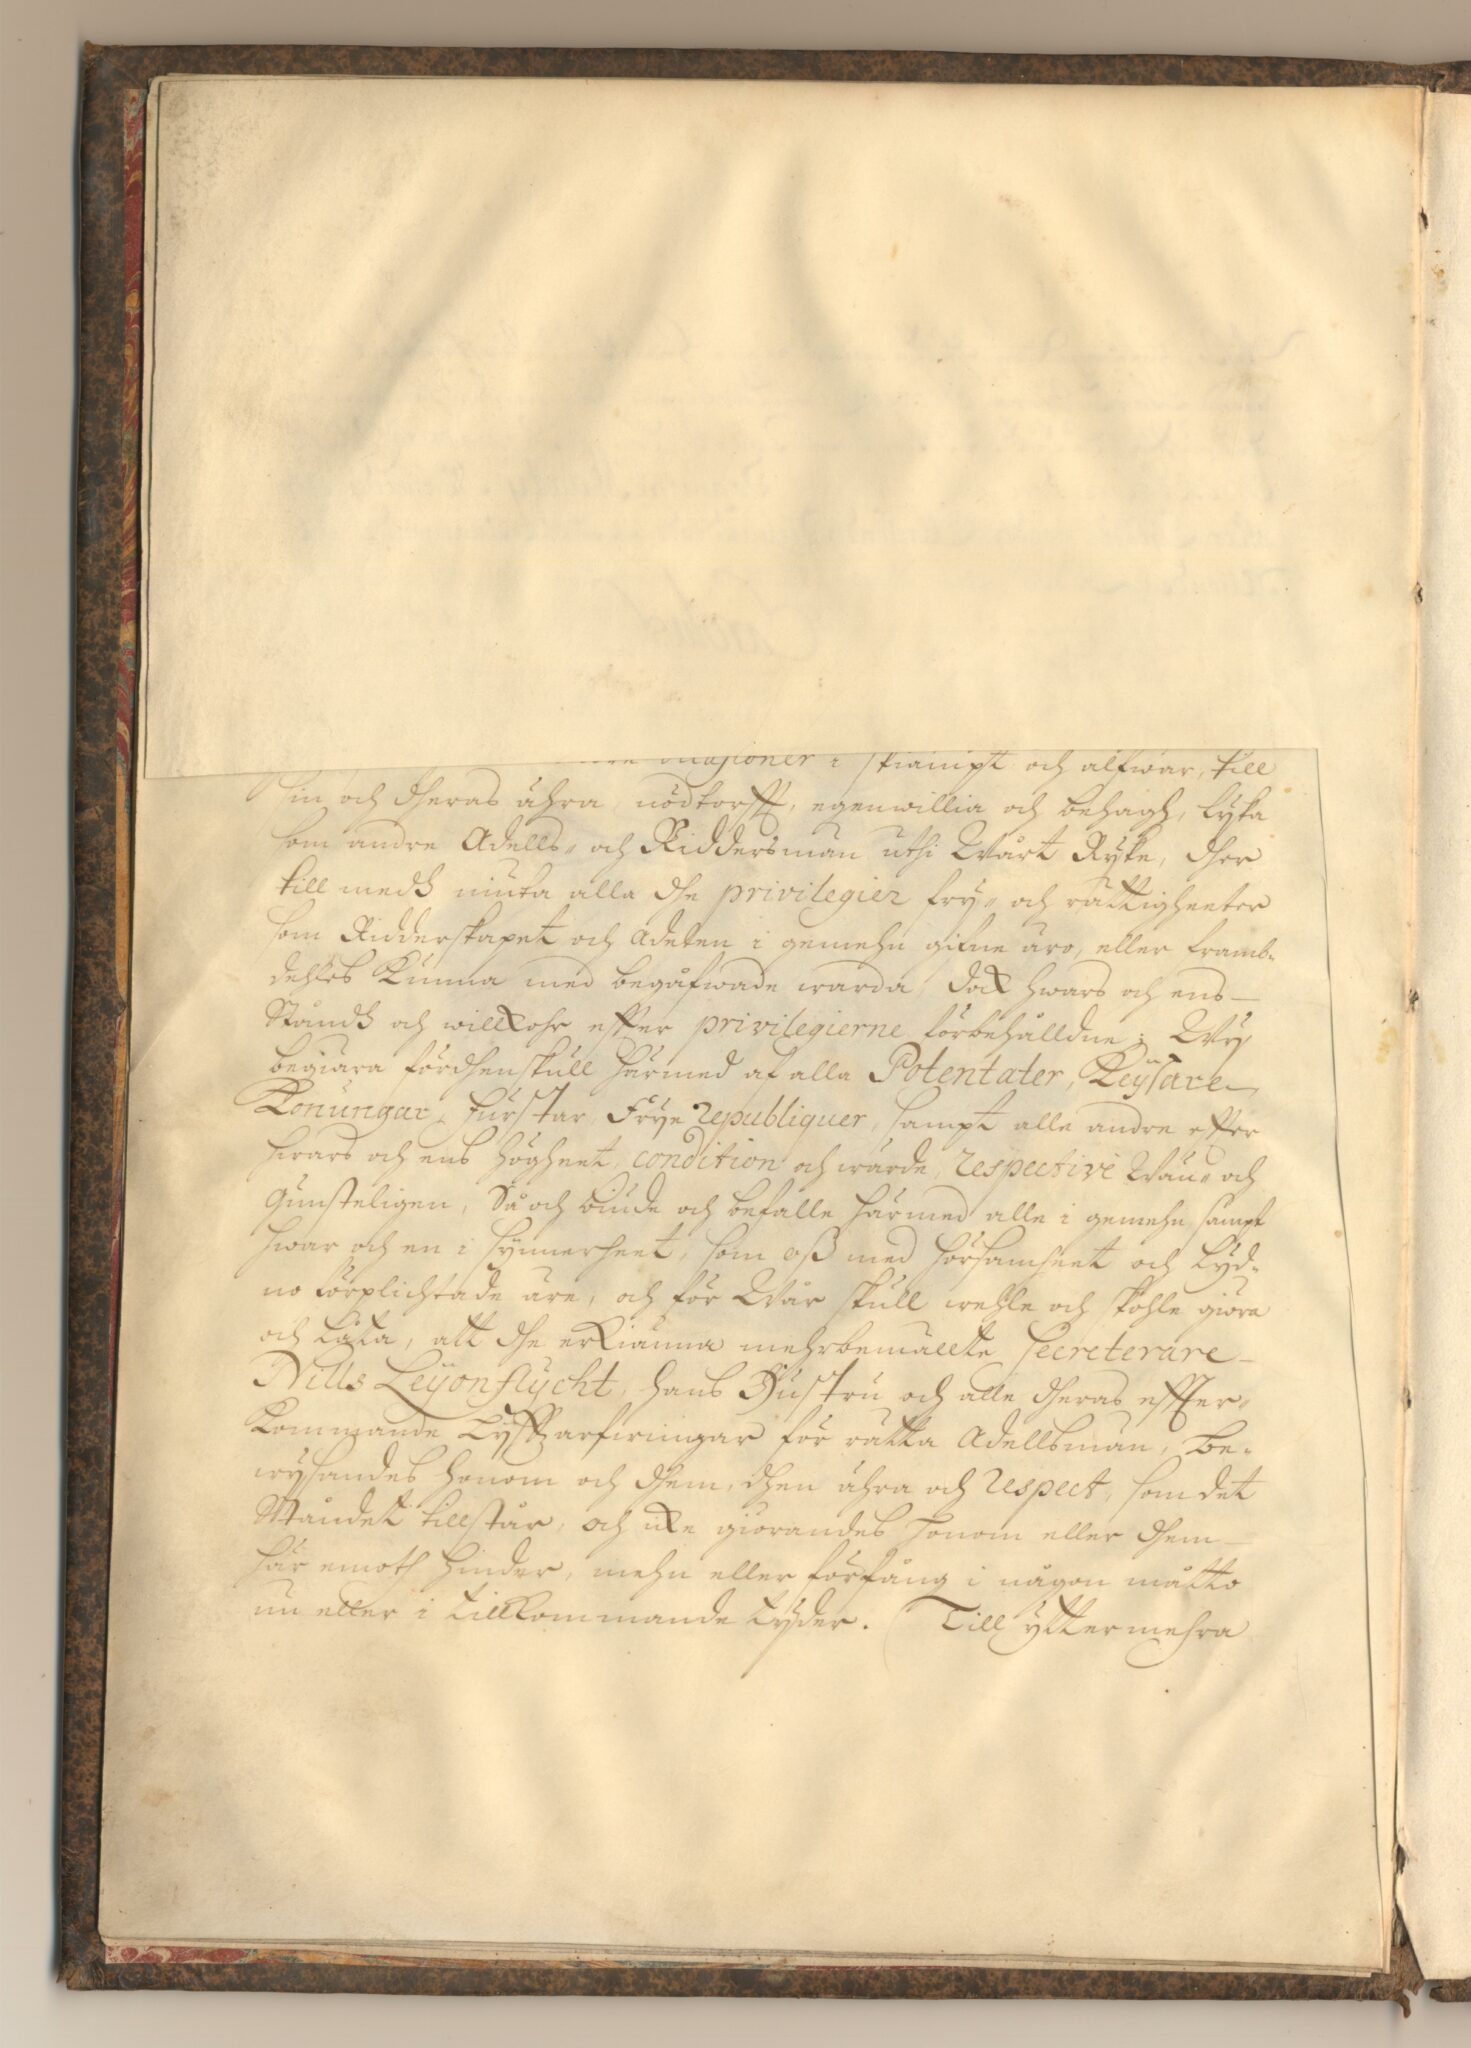 occasioner i skiämpt och alfwar, till
sin och theras ähra, nödtorfft, egenwillia och behagh, lyka
som andre Adells- och Riddersmän uthi Wårt Ryke, ther
till medh niuta alla the privilegier fry- och rättigheeter
som Ridderskapet och Adelen i gemehn gifne äro, eller framb-
dehles kunna med begåfwade warda, dok hwars och ens
Ståndh och willkohr effter privilegierne förbehålldne; Wy
begiära fördhenskull härmed af alla Potentater, Keÿsare
Konungar, furstar, Frye republiquer, sampt alle andre effter
hwars och ens högheet, condition och wärde, respective Wän- och
gunsteligen, Så och biude och befalle härmed alle i gemehn, sampt
hwar och en i synnerheet, som oß med hörsamheet och lyd-
no förplichtade äre, och för Wår skull wehle och skohle giöra
och låta, att the erkiänna mehrbemälte Secreterare
Nills Leÿonflycht, hans Hustru och alle theras effter-
kommande Lyffzarfwingar för rätta Adellsmän, be-
wysandes honom och them, then ähra och respect, som det
Ståndet tillstår, och ike giörandes honom eller them
här emoth hinder, mehn eller förfång i någon måtto
nu eller i tillkommande tyder. Till yttermehra